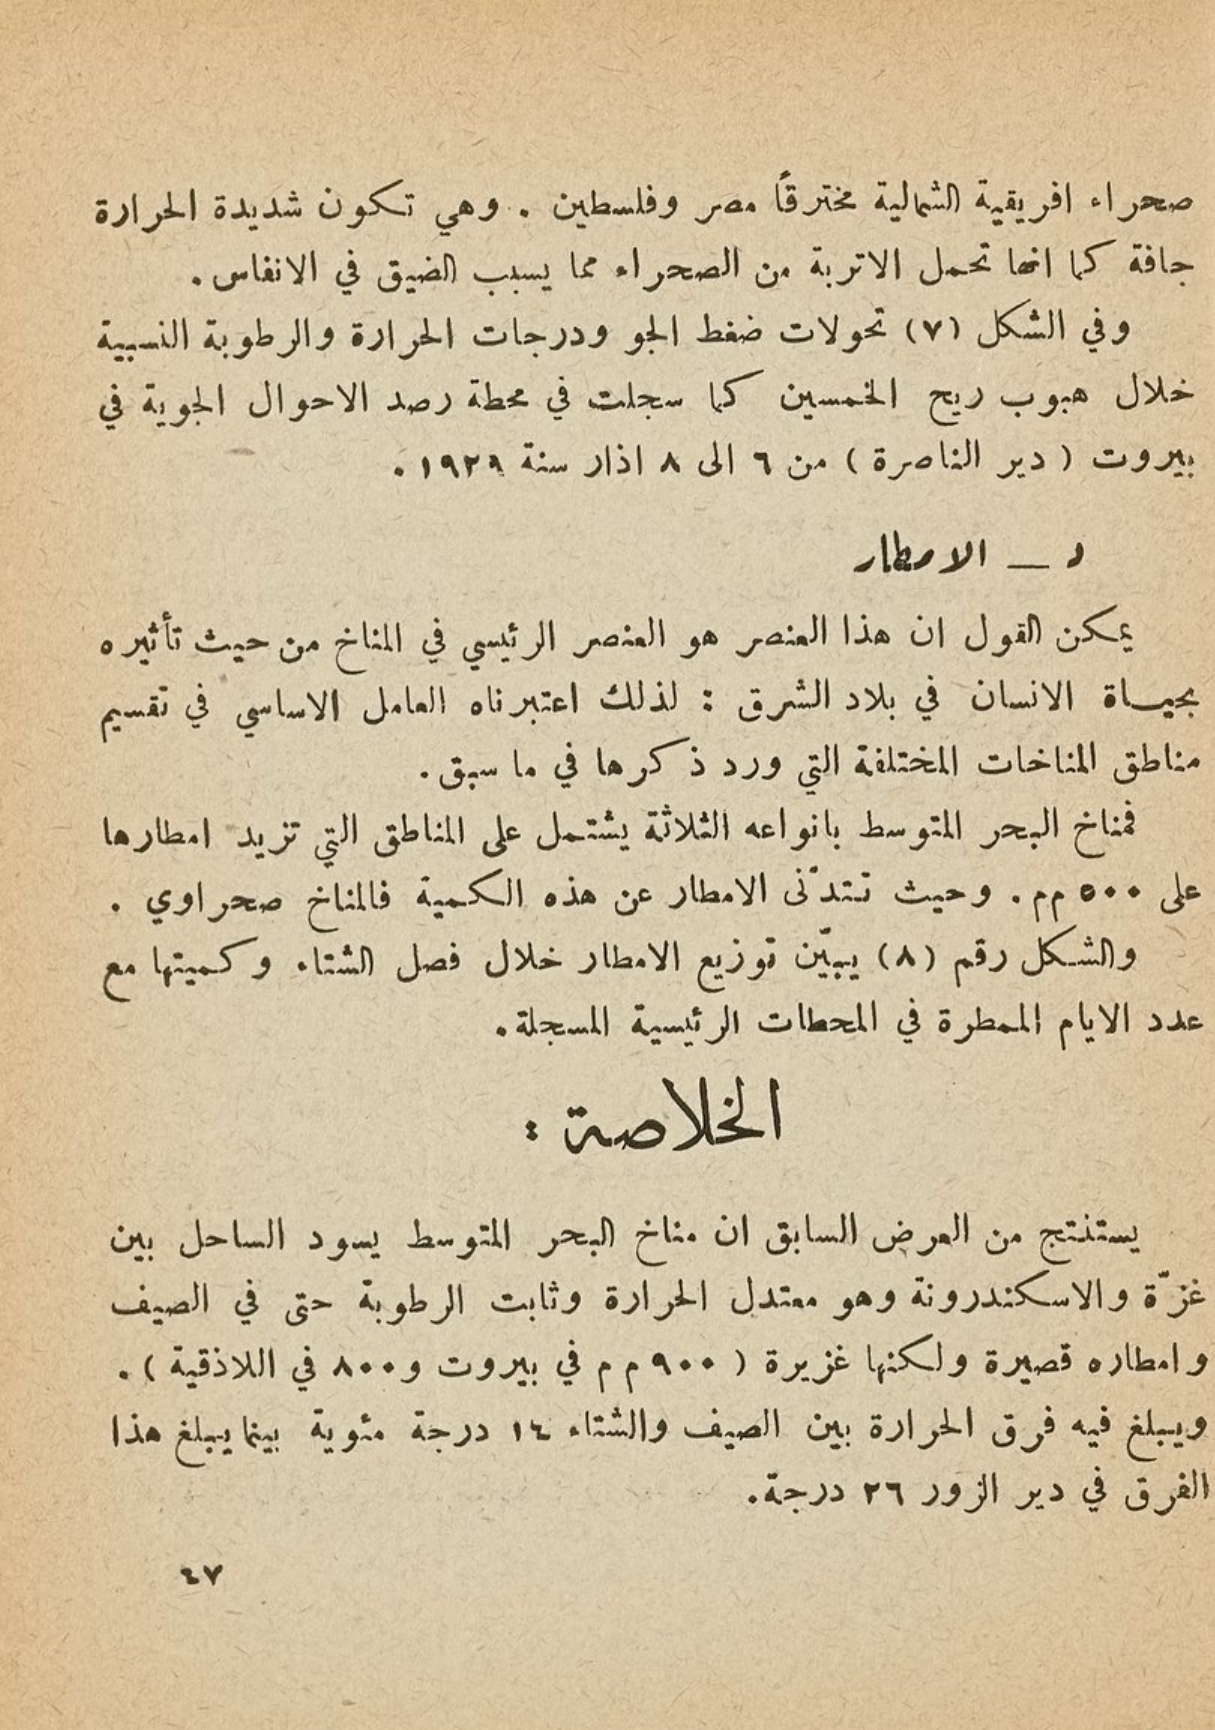 صحراء افريقية الشمالية مخترقاً مصر وفلسطين . وهي تكون شديدة الحرارة
جافة كما انها تحمل الاتربة من الصحراء مما يسبب الضيق في الانفاس .
وفي الشكل (٧) تحولات ضغط الجو ودرجات الحرارة والرطوبة النسبية
خلال هبوب ريح الخمسين كما سجلت في محطة رصد الاحوال الجوية في
بيروت ( دير الناصرة ) من ٦ الى ٨ اذار سنة ١٩٢٩ .
د — الامطار
يمكن القول ان هذا العنصر هو العنصر الرئيسي في المناخ من حيث تأثيره
بحياة الانسان في بلاد الشرق : لذلك اعتبرناه العامل الاساسي في تقسيم
مناطق المناخات المختلفة التي ورد ذكرها في ما سبق .
فمناخ البحر المتوسط بانواعه الثلاثة يشتمل على المناطق التي تزيد امطارها
على ٥٠٠ مم . وحيث تتدنّى الامطار عن هذه الكمية فالمناخ صحراوي .
والشكل رقم (٨) يبيّن توزيع الامطار خلال فصل الشتاء وكميتها مع
عدد الايام الممطرة في المحطات الرئيسية المسجلة .
الخلاصة :
يستنتج من العرض السابق ان مناخ البحر المتوسط يسود الساحل بين
غزّة والاسكندرونة وهو معتدل الحرارة وثابت الرطوبة حتى في الصيف
وامطاره قصيرة ولكنها غزيرة ( ٩٠٠ م م في بيروت و ٨٠٠ في اللاذقية ) .
ويبلغ فيه فرق الحرارة بين الصيف والشتاء ١٤ درجة مئوية بينما يبلغ هذا
الفرق في دير الزور ٢٦ درجة .
٤٧